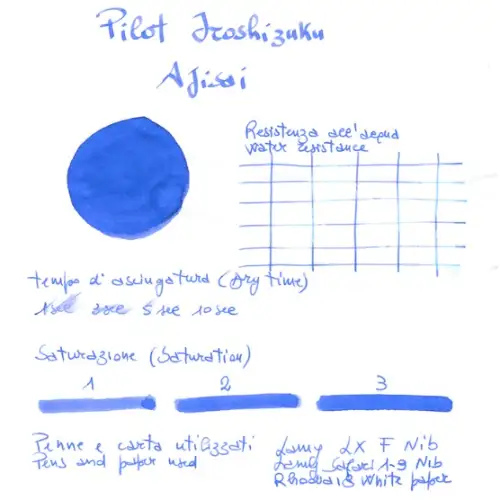 Pilot Iroshizuku
Ajisai
Resistenza all'acqua
water resistance
tempo d'asciugatura (Dry time)
1sec 3sec 5 sec 10 sec
Saturazione (Saturation)
1 2 3
Penne e carta utilizzati
Pens and paper used
Lamy LX F Nib
Lamy Safari 1.9 Nib
Rhodia White paper